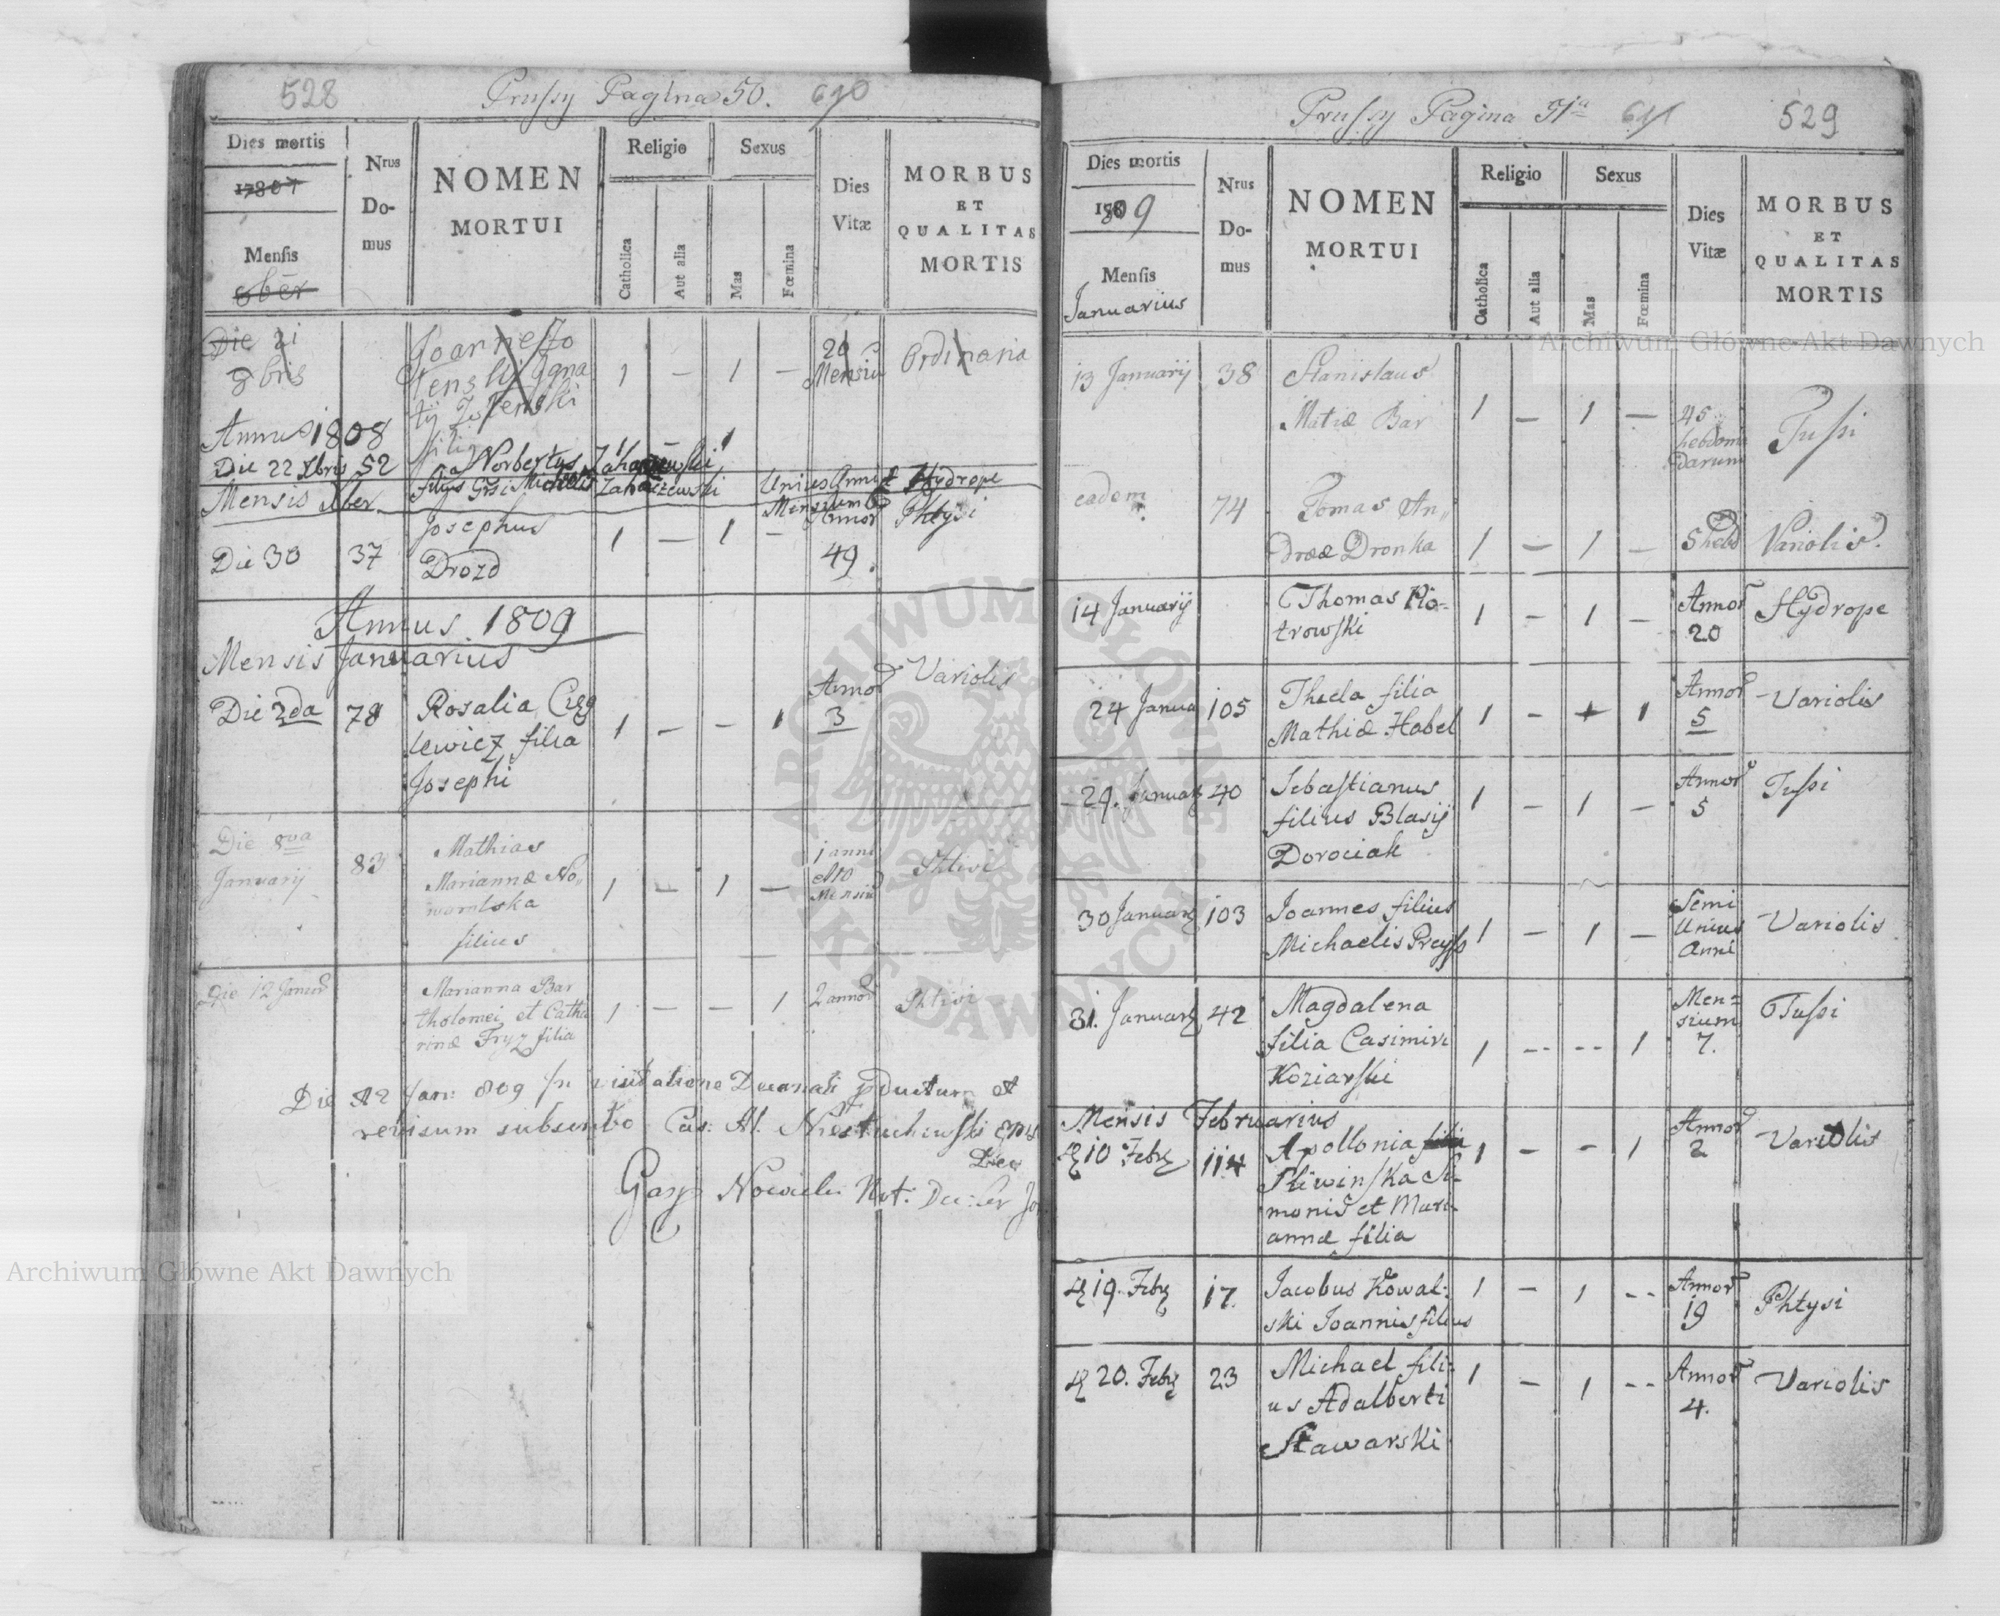 528
Prussy Pagina 50. 690
Dies mortis
1807
Mensis
8ber
Nrus
Do-
mus
NOMEN
MORTUI
Religio
Catholica
Aut alia
Sexus
Mas
Fœmina
Dies
Vitæ
MORBUS
ET
QUALITAS
MORTIS
Die 21
8bris
1 — 1 —
20
Mensiu
Ordinaria
Annus 1808
Die 22 Xbris 52
Norbertus
Unius Anni et Hydrope
Mensis Xber
Mensium
Die 30 37
Josephus
Drozd
1 — 1 —
Annor
49.
Phtysi
Annus 1809
Mensis Januarius
Die 2da 78
Rosalia
lewicz filia
Josephi
1 — — 1
Annor
3
Variolis
Die 8va
Januarij
83
Mathias
Mariannæ No
filius
1 — 1 —
1 anni
et 10
Mensiu
Die 12
Marianna Bar
tholomei et Catha
rinæ Fryz filia
1 — — 1
2 annor
Die 12 Jan: 809 In visitatione Decanali
revisum subscribo
Nowicki Not:
Prussy Pagina 51a 691
529
Dies mortis
1809
Mensis
Januarius
Nrus
Do-
mus
NOMEN
MORTUI
Religio
Catholica
Aut alia
Sexus
Mas
Fœmina
Dies
Vitæ
MORBUS
ET
QUALITAS
MORTIS
13 Januarij 38
Stanislaus
Matiæ Bar
1 — 1 —
45
hebdom
darum
Tussi
eadem 74
Tomas An
dreæ Dronka
1 — 1 —
5 hebd
Variolis.
14 Januarij
Thomas Pio-
trowski
1 — 1 —
Annor
20
Hydrope
24 Janua 105
Thecla filia
Mathiæ Habel
1 — 1
Annor
5
Variolis
29. Januar 40
Sebastianus
filius Blasij
Dorociak
1 — 1 —
Annor
5
Tussi
30 Januar 103
Joannes filius
Michaelis Preyss
1 — 1 —
Semi
Unius
Anni
Variolis
31. Januar 42
Magdalena
filia Casimiri
Koziarski
1 -- -- 1
Men-
sium
7.
Tussi
Mensis Februarius
10 Febr 114
Apollonia
Sliwinska Si-
monis et Mari-
annæ filia
1 — - 1
Annor
2
Variolis
19. Febr 17.
Jacobus Kowal-
ski Joannis filius
1 — 1 --
Annor
19
Phtysi
20. Febr 23
Michael fili-
us Adalberti
Stawarski
1 — 1 --
Annor
4.
Variolis
ARCHIWUM GŁÓWNE AKT DAWNYCH
Archiwum Główne Akt Dawnych
Archiwum Główne Akt Dawnych